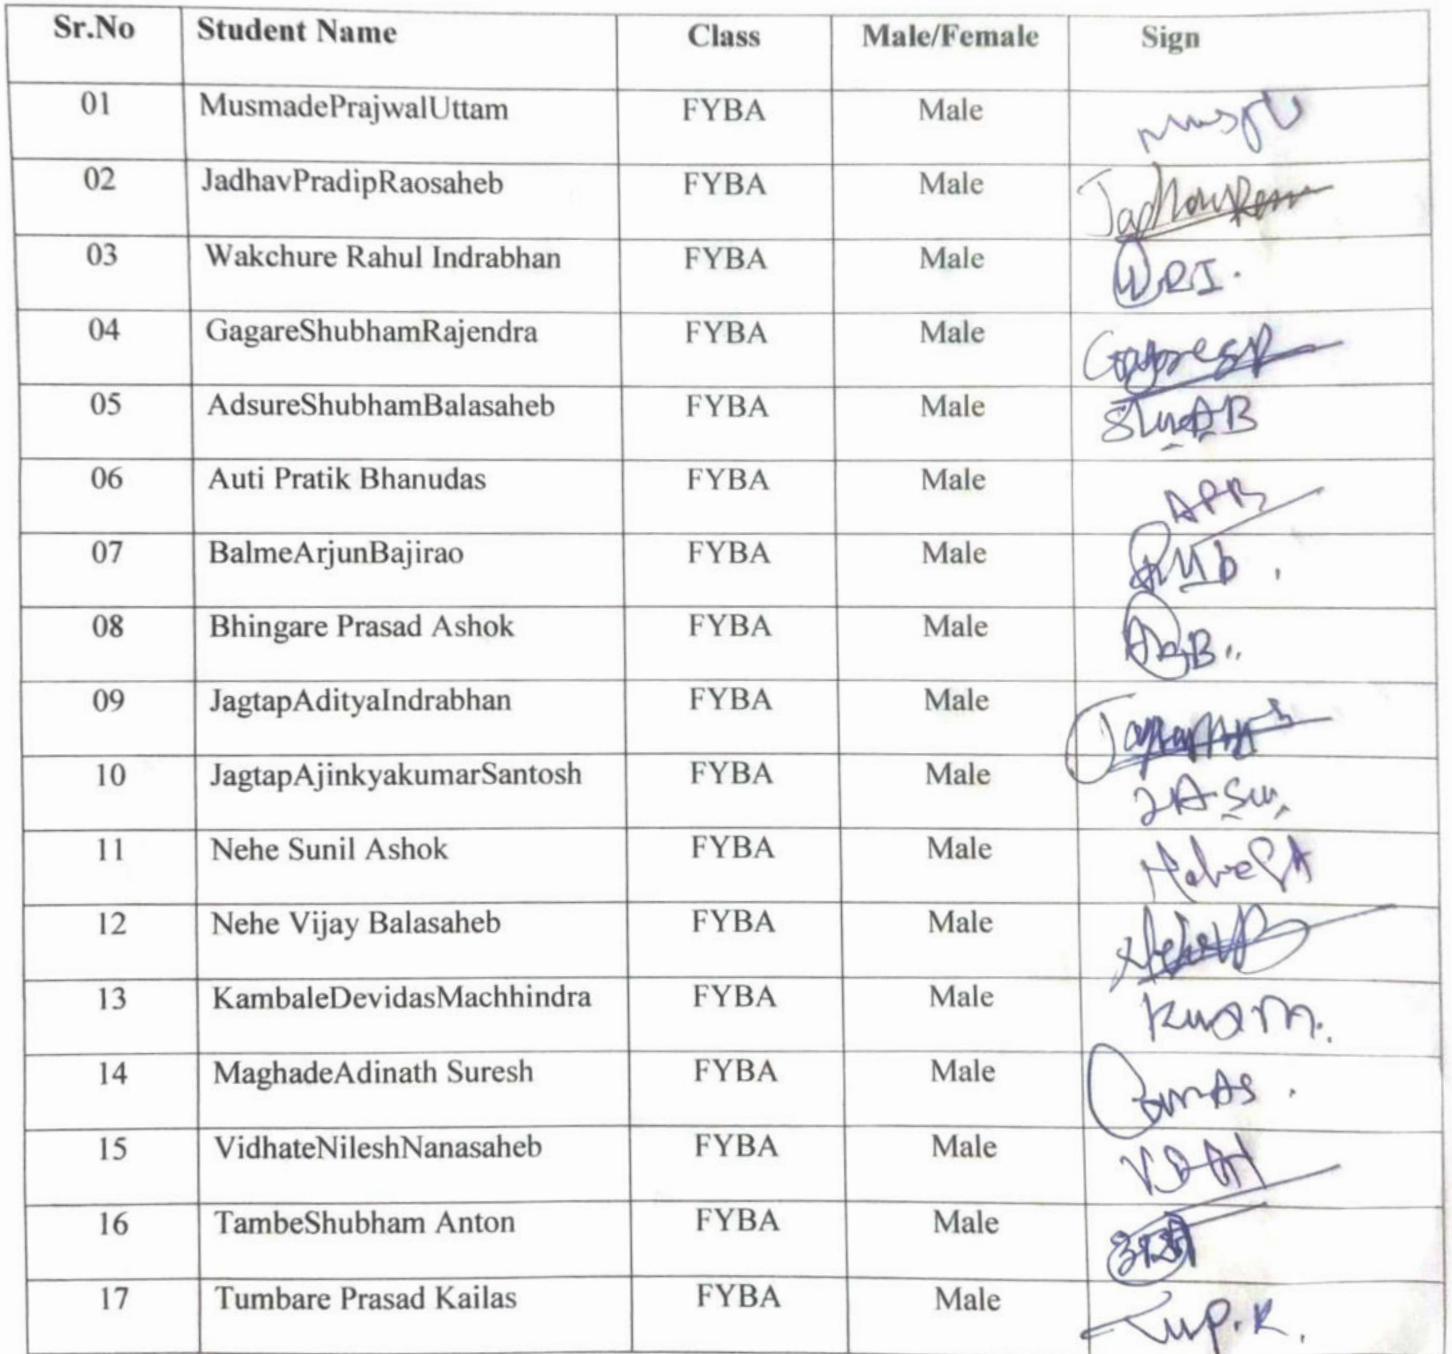 Sr.No Student Name Class Male/Female Sign
01 MusmadePrajwalUttam FYBA Male
02 JadhavPradipRaosaheb FYBA Male
03 Wakchure Rahul Indrabhan FYBA Male WRI.
04 GagareShubhamRajendra FYBA Male
05 AdsureShubhamBalasaheb FYBA Male
06 Auti Pratik Bhanudas FYBA Male APB
07 BalmeArjunBajirao FYBA Male
08 Bhingare Prasad Ashok FYBA Male
09 JagtapAdityaIndrabhan FYBA Male
10 JagtapAjinkyakumarSantosh FYBA Male
11 Nehe Sunil Ashok FYBA Male
12 Nehe Vijay Balasaheb FYBA Male
13 KambaleDevidasMachhindra FYBA Male
14 MaghadeAdinath Suresh FYBA Male
15 VidhateNileshNanasaheb FYBA Male
16 TambeShubham Anton FYBA Male
17 Tumbare Prasad Kailas FYBA Male